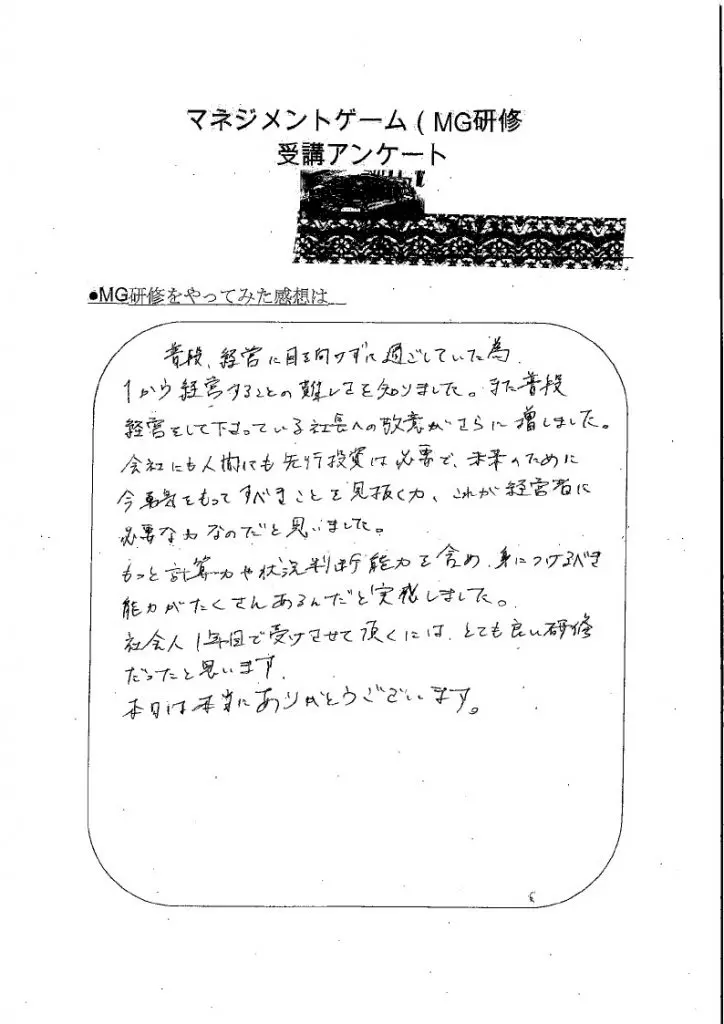 マネジメントゲーム（MG研修
受講アンケート
●MG研修をやってみた感想は
普段、経営に目を向けずに過ごしていた為、
1から経営することの難しさを知りました。また普段
経営をして下さっている社長への敬意がさらに増しました。
会社にも人間にも先行投資は必要で、未来のために
今勇気をもってすべきことを見抜く力、これが経営者に
必要な力なのだと思いました。
もっと計算力や状況判断能力を含め、身につけるべき
能力がたくさんあるんだと実感しました。
社会人1年目で受けさせて頂くには、とても良い研修
だったと思います。
本日は本当にありがとうございます。